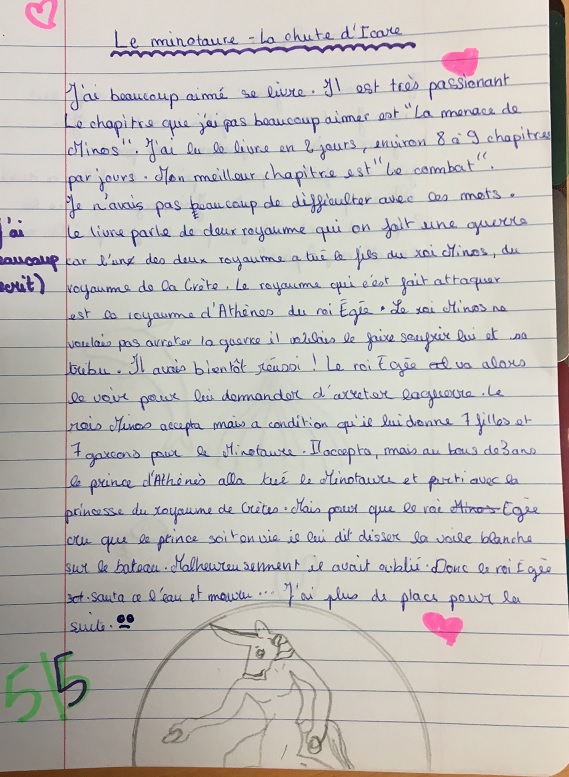 Le minotaure - La chute d'Icare
J'ai beaucoup aimé se livre. Il est très passionant
Le chapitre que j'ai pas beaucoup aimer est "La menace de
Minos". J'ai lu le livre en 2 jours, environ 8 à 9 chapitres
par jours. Mon meilleur chapitre est "Le combat".
Je n'avais pas beaucoup de difficulter avec les mots.
Le livre parle de deux royaume qui on fait une guerre
car l'une des deux royaume a tué le fils du roi Minos, du
royaume de la Crète. Le royaume qui c'est fait attaquer
est le royaume d'Athènes du roi Égée. Le roi Minos ne
voulais pas arreter la guerre il voulais le faire soufrir lui et sa
tribu. Il avais bientôt réussi ! Le roi Égée va alors
le voir pour lui demander d'arreter la guerre. Le
rois Minos accepta mais a condition qu'il lui donne 7 filles et
7 garcons pour le Minotaure. Il accepta, mais au bous de 3 ans
le prince d'Athènes alla tué le Minotaure et parti avec la
princesse du royaume de Crètes. Mais pour que le roi Minos Egée
cru que le prince soit en vie il lui dit disser la voile blanche
sur le bateau. Malheureusement il avait oublié. Donc le roi Egée
sauta a l'eau et mouru... J'ai plus de place pour la
suite.
J'ai
beaucoup
écrit)
5/5